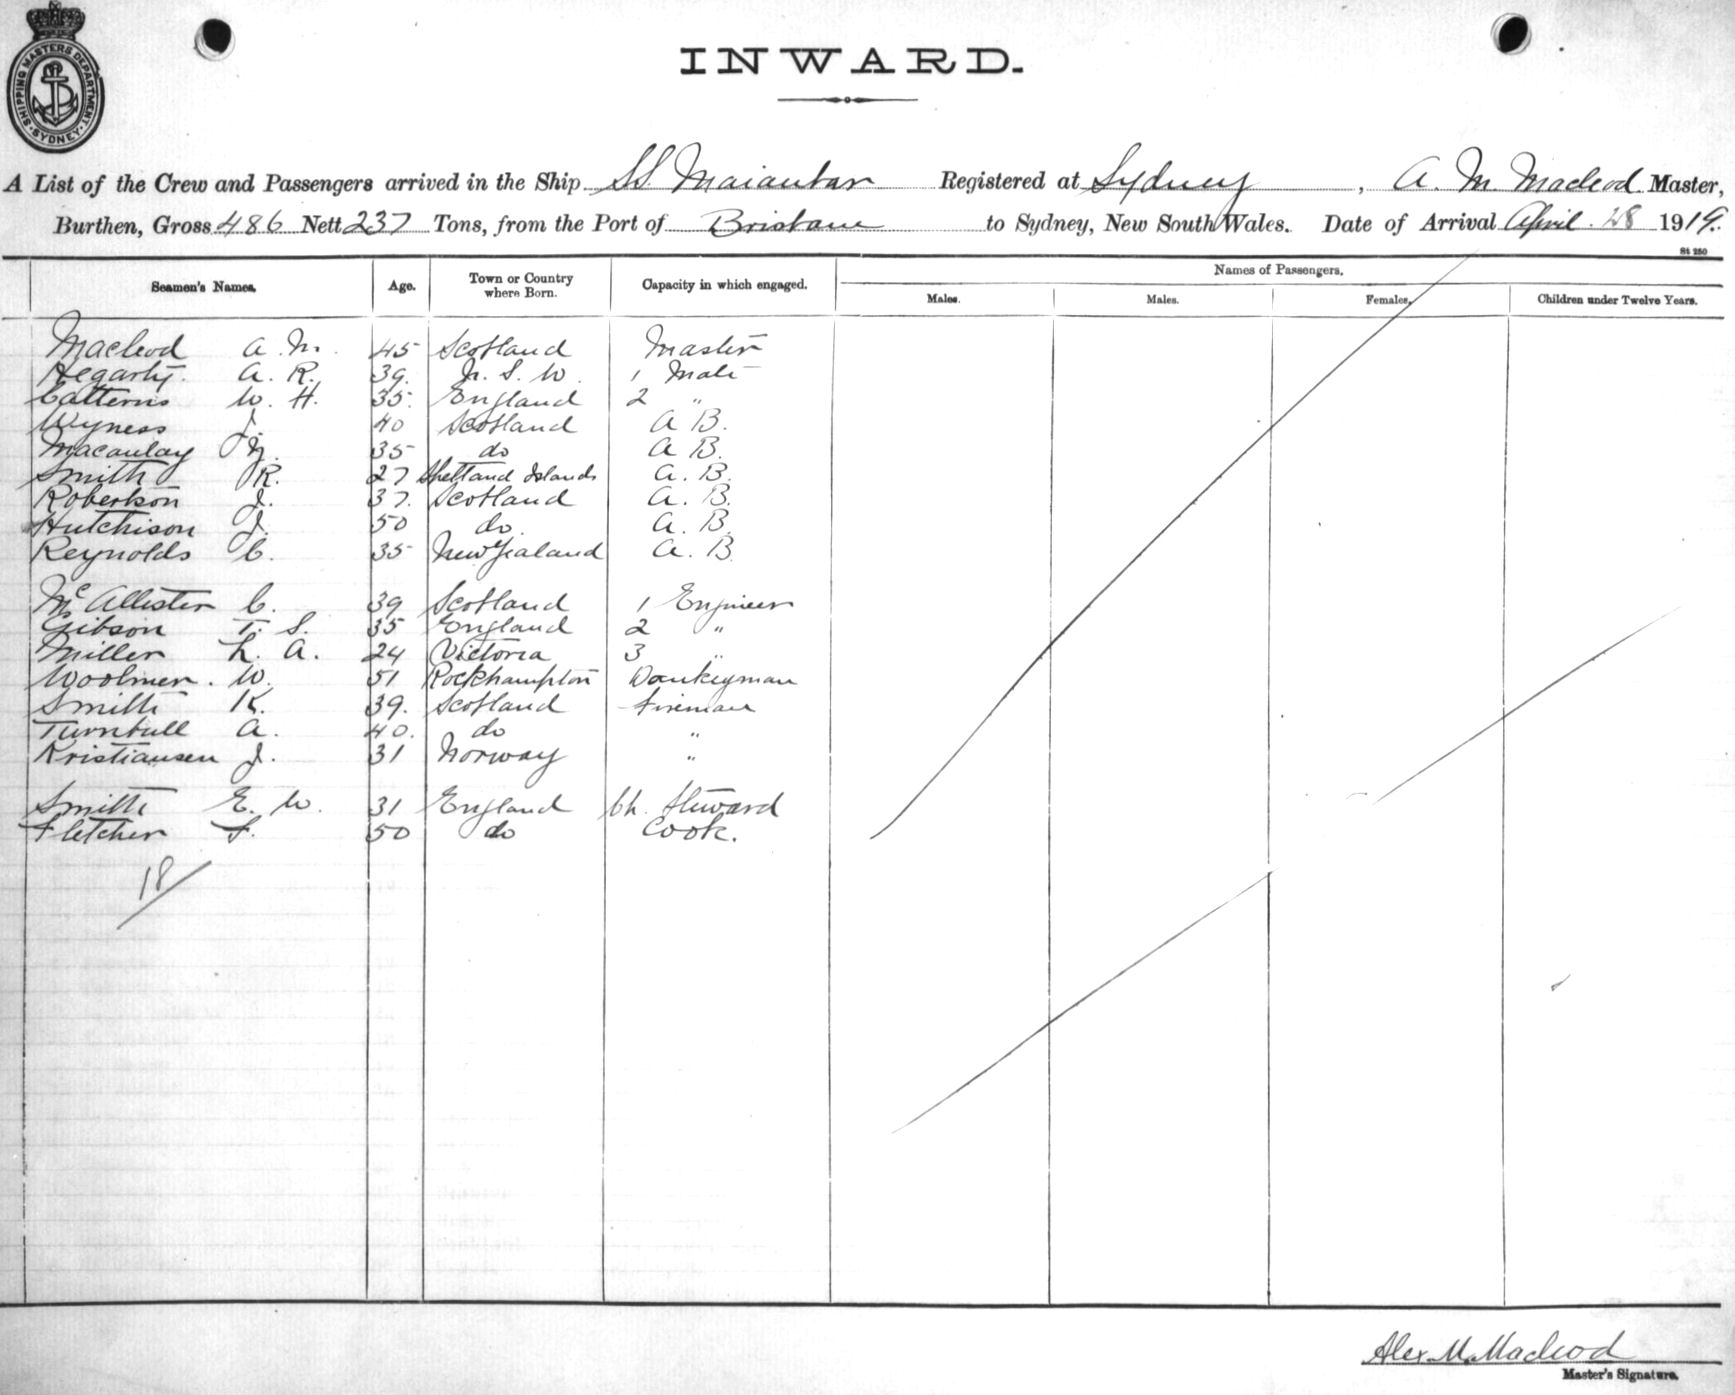 SHIPPING MASTERS DEPARTMENT
SYDNEY
INWARD.
A List of the Crew and Passengers arrived in the Ship SS. Maianbar Registered at Sydney, A. M. Macleod Master,
Burthen, Gross 486 Nett 237 Tons, from the Port of Brisbane to Sydney, New South Wales. Date of Arrival April 28 1919.
St 250
Seamen's Names. Age. Town or Country where Born. Capacity in which engaged. Names of Passengers.
Males. Males. Females. Children under Twelve Years.
Macleod A. M. 45 Scotland Master
Hegarty. A. R. 39. N. S. W. 1 Mate
Catterns W. H. 35. England 2 "
Wyness J. 40 Scotland A B.
Macaulay 35 do A B.
Smith R. 27 Shetland Islands A. B.
Robertson J. 37. Scotland A. B.
Hutchison J. 50 do. A. B.
Reynolds C. 35 New Zealand A. B.
McAllister C. 39 Scotland 1 Engineer
Gibson T. S. 35 England 2 "
Miller L. A. 24 Victoria 3 "
Woolmer. W. 51 Rockhampton Donkeyman
Smith K. 39. Scotland Fireman
Turnbull A. 40. do "
Kristiansen J. 31 Norway "
Smith E. W. 31 England Ch. Steward
Fletcher F. 50 do Cook.
18/
Alex. M. Macleod
Master's Signature.